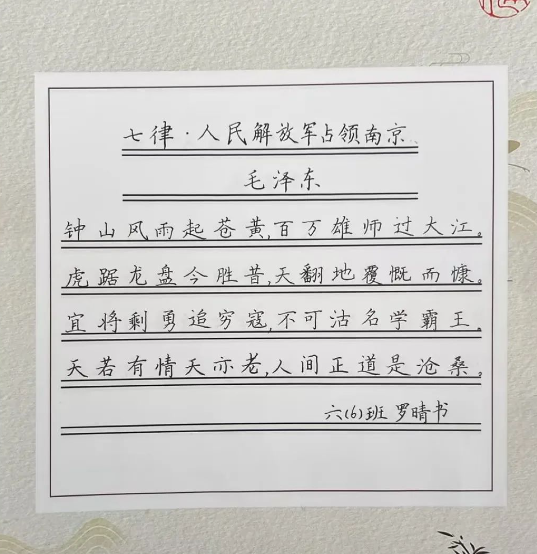 七律·人民解放军占领南京
毛泽东
钟山风雨起苍黄,百万雄师过大江。
虎踞龙盘今胜昔,天翻地覆慨而慷。
宜将剩勇追穷寇,不可沽名学霸王。
天若有情天亦老,人间正道是沧桑。
六(6)班 罗晴书